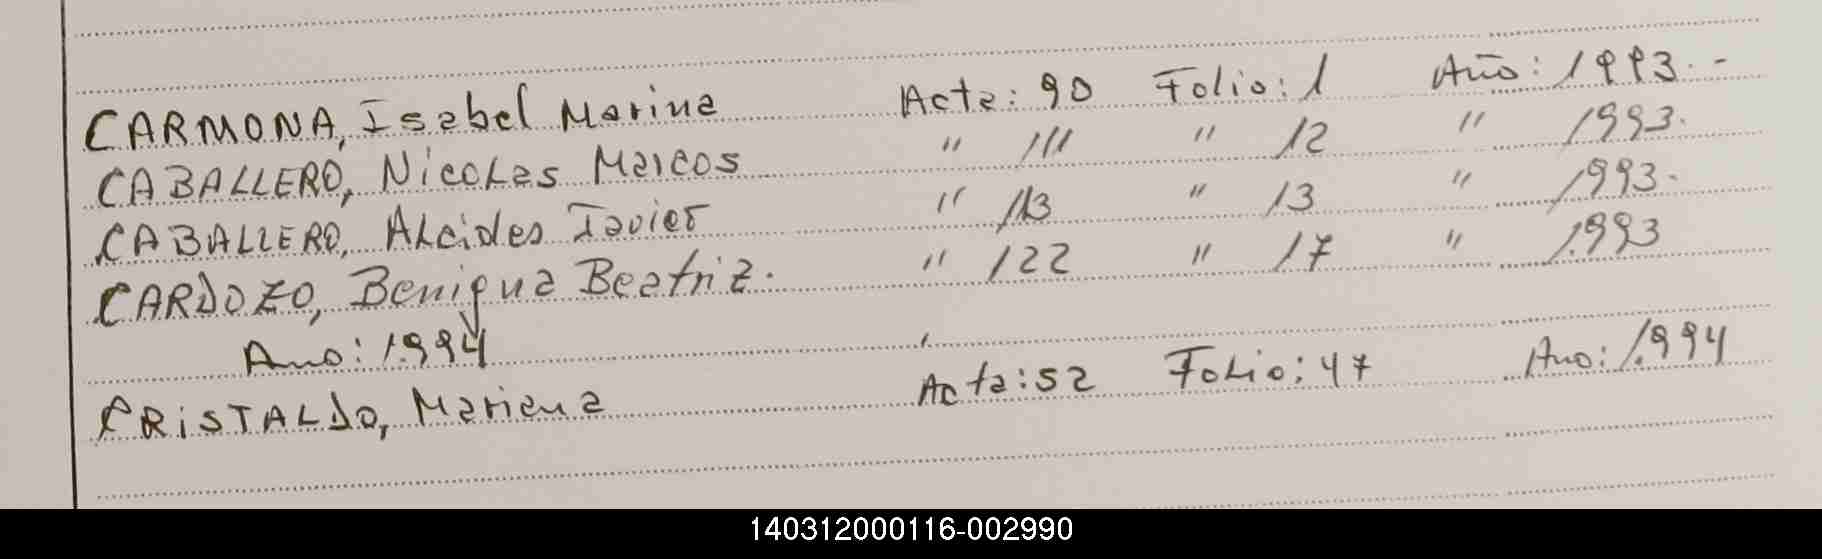 CARMONA, Isabel Marina Acta: 90 Folio: 1 Año: 1993.-
CABALLERO, Nicolas Marcos " 111 " 12 " 1993.
CABALLERO, Alcides Javier " 113 " 13 " 1993.
CARDOZO, Benigna Beatriz. " 122 " 17 " 1.993
Ano: 1.994
CRISTALDO, Mariana Acta: 52 Folio: 47 Ano: 1.994
140312000116-002990